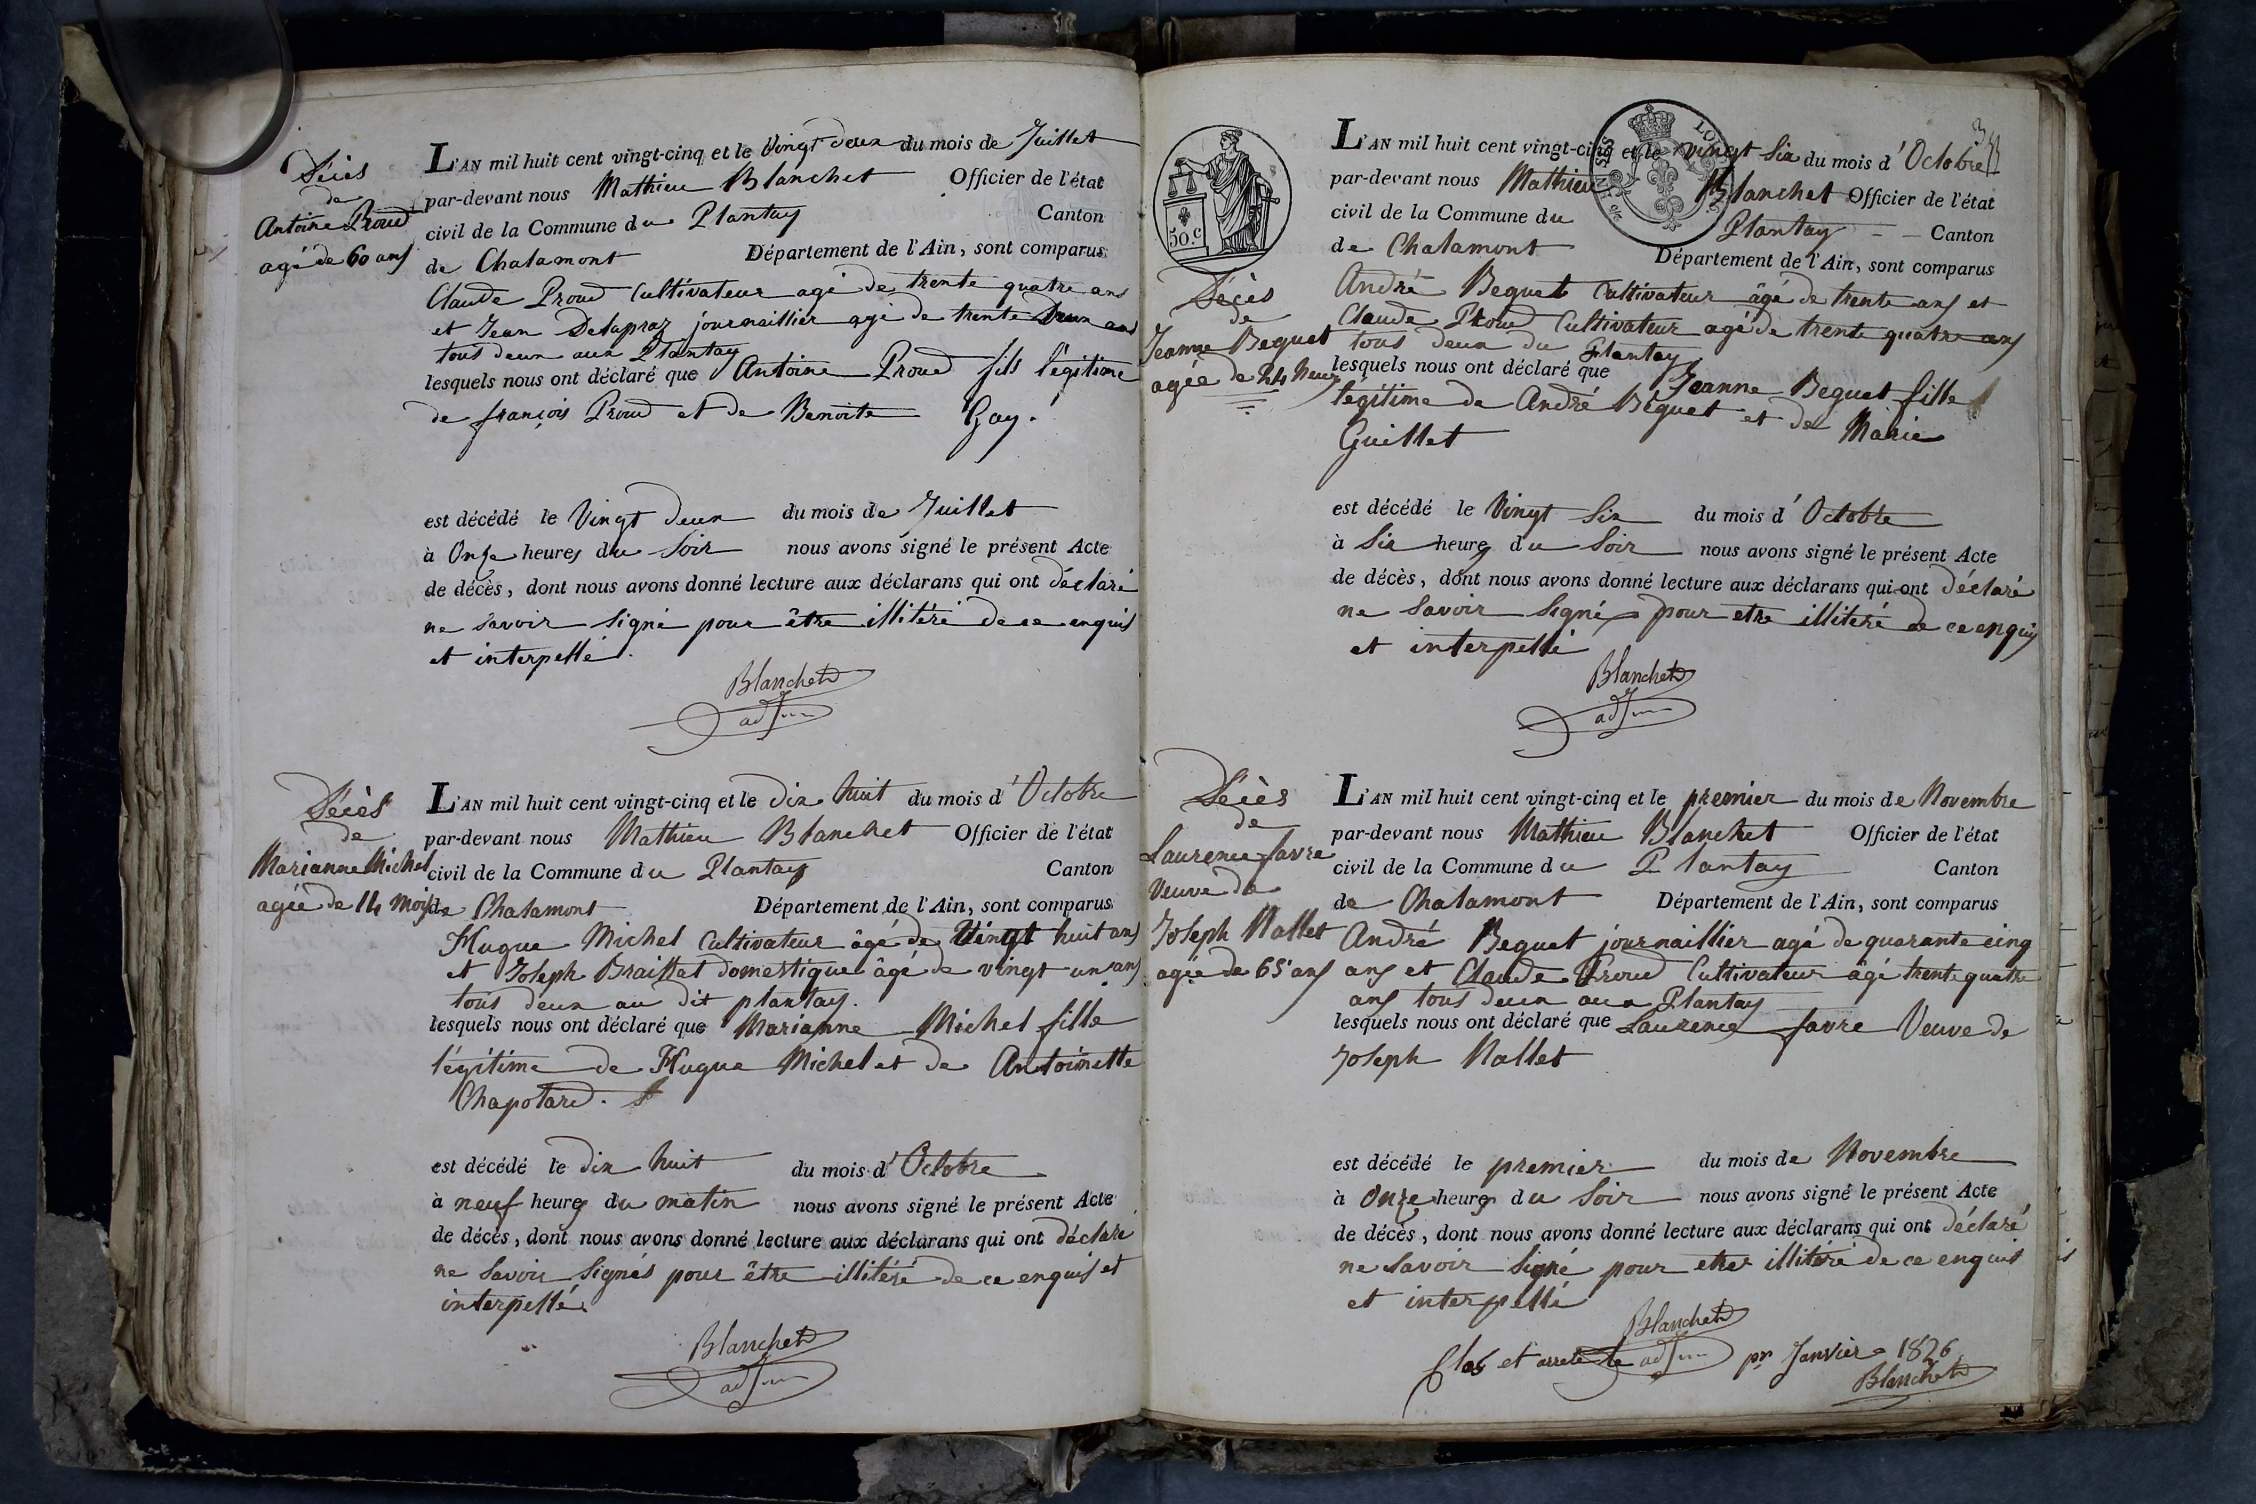 Décès
de
Antoine Proud
agé de 60 ans
L'AN mil huit cent vingt-cinq et le Vingt deux du mois de Juillet
par-devant nous Mathieu Blanchet Officier de l'état
civil de la Commune du Plantay Canton
de Chalamont Département de l'Ain, sont comparus
Claude Proud Cultivateur agé de trente quatre ans
et Jean Delapraz journaillier agé de trente Deux ans
tous deux aux Plantay
lesquels nous ont déclaré que Antoine Proud fils légitime
de françois Proud et de Benoite Gay.
est décédé le Vingt deux du mois de Juillet
à Onze heures du Soir nous avons signé le présent Acte
de décès, dont nous avons donné lecture aux déclarans qui ont déclaré
ne savoir signé pour être illitéré de ce enquis
et interpellé.
Blanchet
adj
Décès
de
Marianne Michel
agée de 14 mois
L'AN mil huit cent vingt-cinq et le dix huit du mois d'Octobre
par-devant nous Mathieu Blanchet Officier de l'état
civil de la Commune du Plantay Canton
de Chalamont Département de l'Ain, sont comparus
Hugue Michel Cultivateur âgé de Vingt huit ans
et Joseph Braissat domestique âgé de vingt un ans
tous deux au dit plantay.
lesquels nous ont déclaré que Marianne Michel fille
légitime de Hugue Michel et de Antoinette
Chapotard.
est décédé le dix huit du mois d'Octobre
à neuf heures du matin nous avons signé le présent Acte
de décès, dont nous avons donné lecture aux déclarans qui ont déclaré
ne Savoir Signés pour être illitéré de ce enquis et
interpellé.
Blanchet
adj
50.c
34
Décès
de
Jeanne Beguet
agée de 24 heures
L'AN mil huit cent vingt-cinq et le vingt Six du mois d'Octobre
par-devant nous Mathieu Blanchet Officier de l'état
civil de la Commune du Plantay Canton
de Chalamont Département de l'Ain, sont comparus
André Beguet Cultivateur âgé de trente ans et
Claude Proud Cultivateur agé de trente quatre ans
tous deux du Plantay
lesquels nous ont déclaré que Jeanne Beguet fille
légitime de André Béguet et de Marie
Guillet
est décédé le Vingt Six du mois d'Octobre
à Six heures du Soir nous avons signé le présent Acte
de décès, dont nous avons donné lecture aux déclarans qui ont déclaré
ne Savoir Signé pour etre illitéré de ce enquis
et interpellé
Blanchet
adj
Décès
de
Laurence favre
Veuve de
Joseph Nallet
agée de 65 ans
L'AN mil huit cent vingt-cinq et le premier du mois de Novembre
par-devant nous Mathieu Blanchet Officier de l'état
civil de la Commune du Plantay Canton
de Chalamont Département de l'Ain, sont comparus
André Beguet journaillier agé de quarante cinq
ans et Claude Proud Cultivateur âgé trente quatre
ans tous deux aux Plantay
lesquels nous ont déclaré que Laurence favre Veuve de
Joseph Nallet
est décédé le premier du mois de Novembre
à Onze heures du Soir nous avons signé le présent Acte
de décès, dont nous avons donné lecture aux déclarans qui ont déclaré
ne Savoir Signé pour etre illitéré de ce enquis
et interpellé
Blanchet
adj
Clos et arreté le pr Janvier 1826
Blanchet